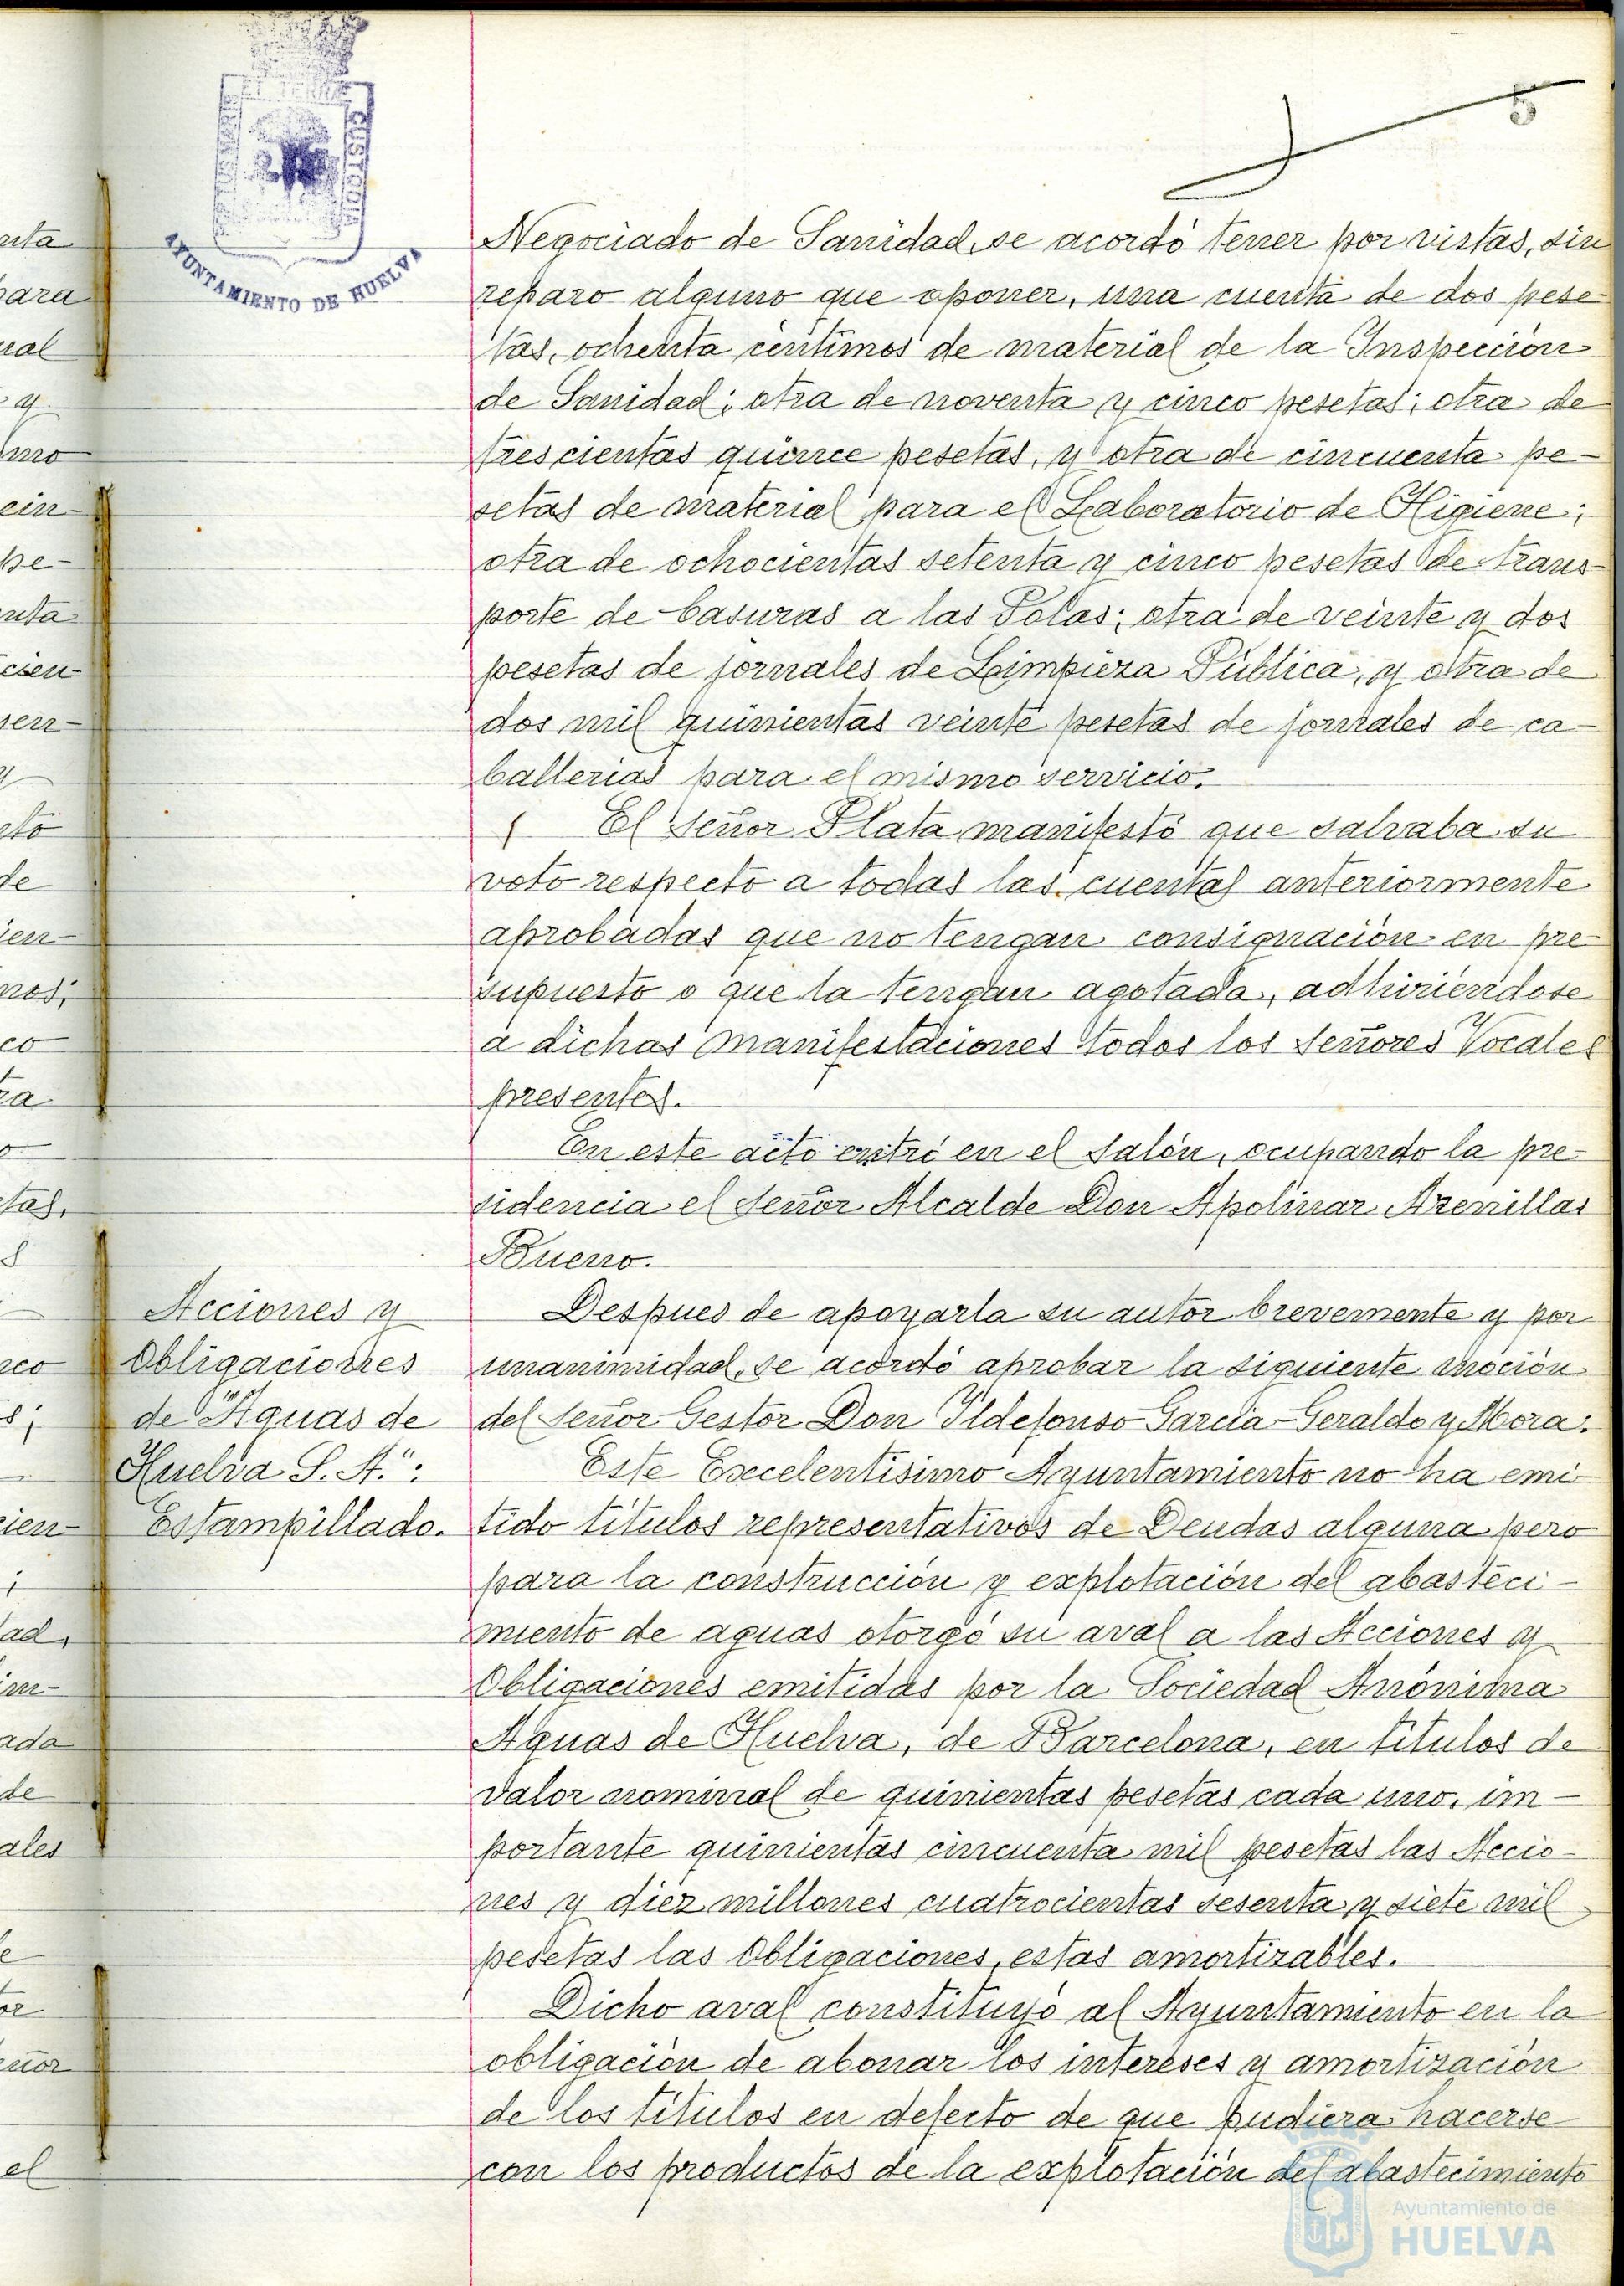 5
PORTUS MARIS ET TERRAE CUSTODIA
AYUNTAMIENTO DE HUELVA
Negociado de Sanidad, se acordó tener por vistas, sin
reparo alguno que oponer, una cuenta de dos pese-
tas, ochenta céntimos de material de la Inspección
de Sanidad; otra de noventa y cinco pesetas; otra de
trescientas quince pesetas, y otra de cincuenta pe-
setas de material para el Laboratorio de Higiene;
otra de ochocientas setenta y cinco pesetas de trans-
porte de basuras a las Polas; otra de veinte y dos
pesetas de jornales de Limpieza Pública, y otra de
dos mil quinientas veinte pesetas de jornales de ca-
ballerias para el mismo servicio.
El Señor Plata manifestó que salvaba su
voto respecto a todas las cuentas anteriormente
aprobadas que no tengan consignación en pre-
supuesto o que la tengan agotada, adhiriéndose
a dichas manifestaciones todos los Señores Vocales
presentes.
En este acto entró en el Salón, ocupando la pre-
sidencia el Señor Alcalde Don Apolinar Arenillas
Bueno.
Acciones y
Obligaciones
de "Aguas de
Huelva S. A.":
Estampillado.
Despues de apoyarla su autor brevemente y por
unanimidad, se acordó aprobar la siguiente moción
del Señor Gestor Don Ildefonso García-Geraldo y Mora:
Este Excelentísimo Ayuntamiento no ha emi-
tido títulos representativos de Deudas alguna pero
para la construcción y explotación del abasteci-
miento de aguas otorgó su aval a las Acciones y
Obligaciones emitidas por la Sociedad Anónima
Aguas de Huelva, de Barcelona, en títulos de
valor nominal de quinientas pesetas cada uno, im-
portante quinientas cincuenta mil pesetas las Accio-
nes y diez millones cuatrocientas sesenta y siete mil
pesetas las Obligaciones, estas amortizables.
Dicho aval constituyó al Ayuntamiento en la
obligación de abonar los intereses y amortización
de los títulos en defecto de que pudiera hacerse
con los productos de la explotación del abastecimiento
Ayuntamiento de
HUELVA